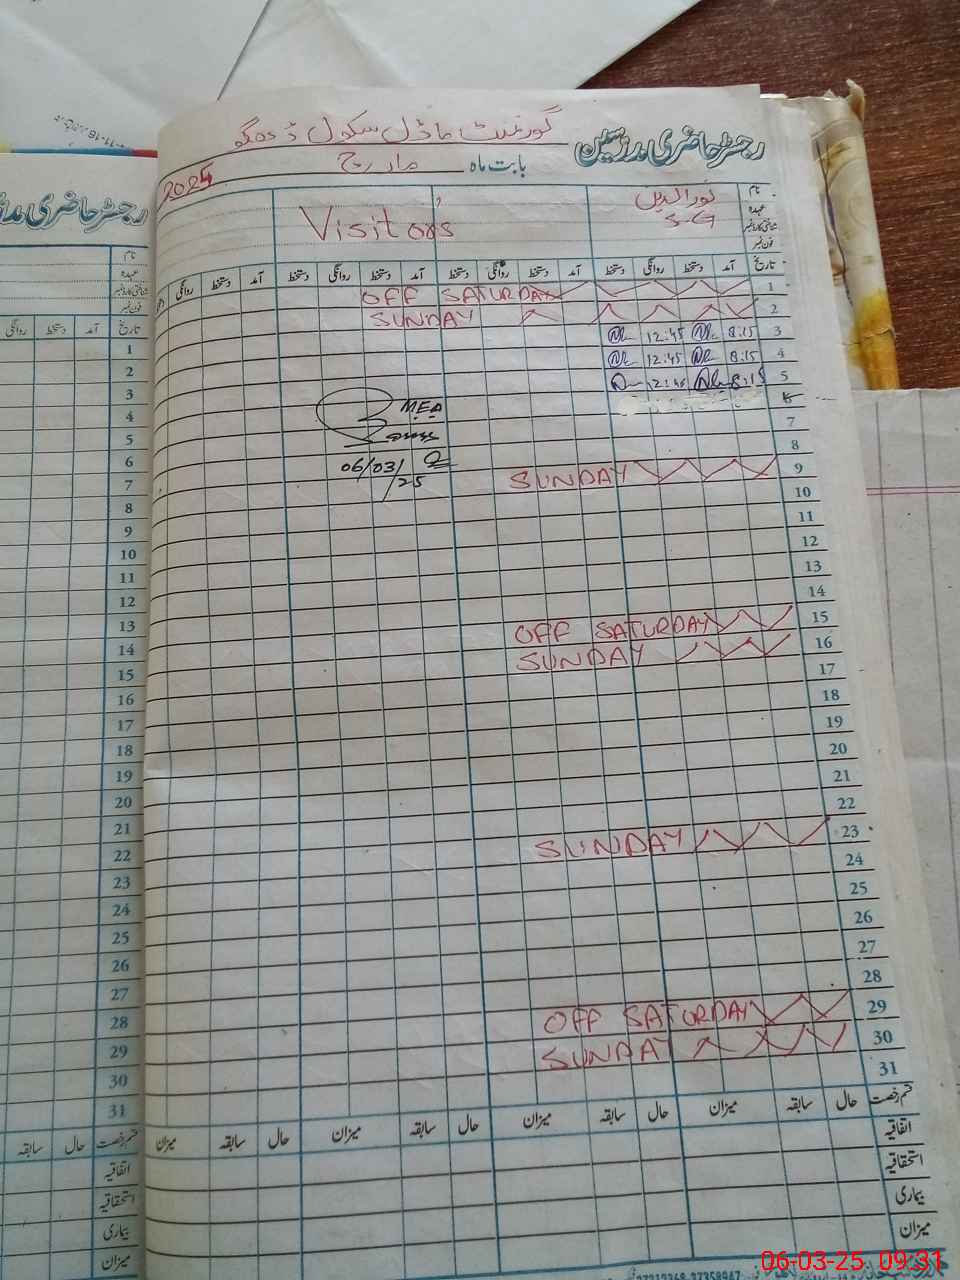 گورنمنٹ ماڈل سکول ڈھگو
رجسٹر حاضری مدرسین
بابت ماہ مارچ
2025
نام نورالدین
عہدہ S-G
شناختی کارڈ نمبر
فون نمبر
Visitors
تاریخ آمد دستخط روانگی دستخط آمد دستخط روانگی دستخط آمد دستخط روانگی دستخط آمد دستخط روانگی
1 OFF SATURDAY
2 SUNDAY
3 8:15 12:45
4 8:15 12:45
5 8:15 12:45
6
7
8
9 SUNDAY
10
11
12
13
14
15 OFF SATURDAY
16 SUNDAY
17
18
19
20
21
22
23 SUNDAY
24
25
26
27
28
29 OFF SATURDAY
30 SUNDAY
31
MEA
06/03/25
قسم رخصت حال سابقہ میزان حال سابقہ میزان حال سابقہ میزان حال سابقہ میزان
اتفاقیہ
استحقاقیہ
بیماری
میزان
رجسٹر حاضری
نام
عہدہ
شناختی کارڈ نمبر
فون نمبر
تاریخ آمد دستخط روانگی
1
2
3
4
5
6
7
8
9
10
11
12
13
14
15
16
17
18
19
20
21
22
23
24
25
26
27
28
29
30
31
قسم رخصت حال سابقہ
اتفاقیہ
استحقاقیہ
بیماری
میزان
06-03-25 09:31